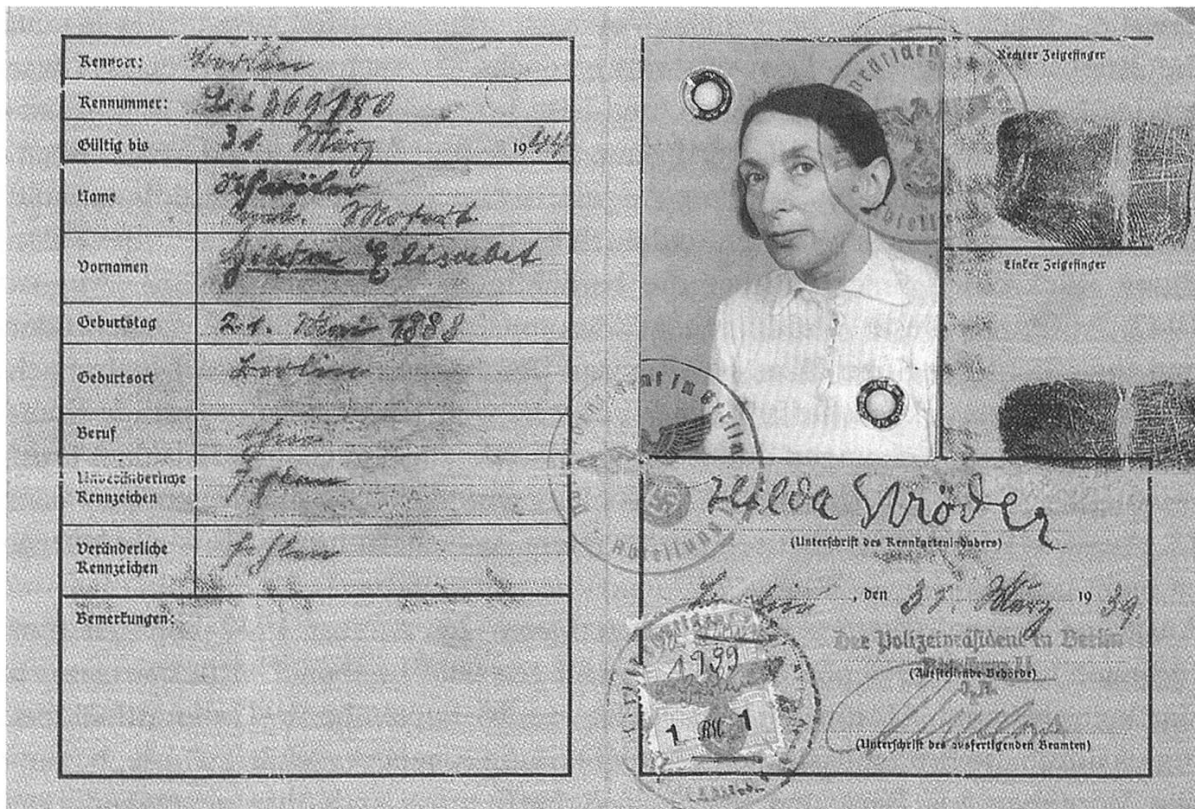 Kennort: Berlin
Kennummer: 369780
Gültig bis 31. März 1944
Name
geb.
Vornamen Hilda Elisabet
Geburtstag 21. Mai 1888
Geburtsort Berlin
Beruf ohne
Unveränderliche Kennzeichen fehlen
Veränderliche Kennzeichen fehlen
Bemerkungen:
Rechter Zeigefinger
Linker Zeigefinger
Hilda
(Unterschrift des Kennkarteninhabers)
Berlin, den 31. März 1939
Der Polizeipräsident in Berlin
Abteilung II
(Ausstellende Behörde)
I. A.
(Unterschrift des ausfertigenden Beamten)
Polizeipräsident in Berlin
Abteilung
1 RM 1